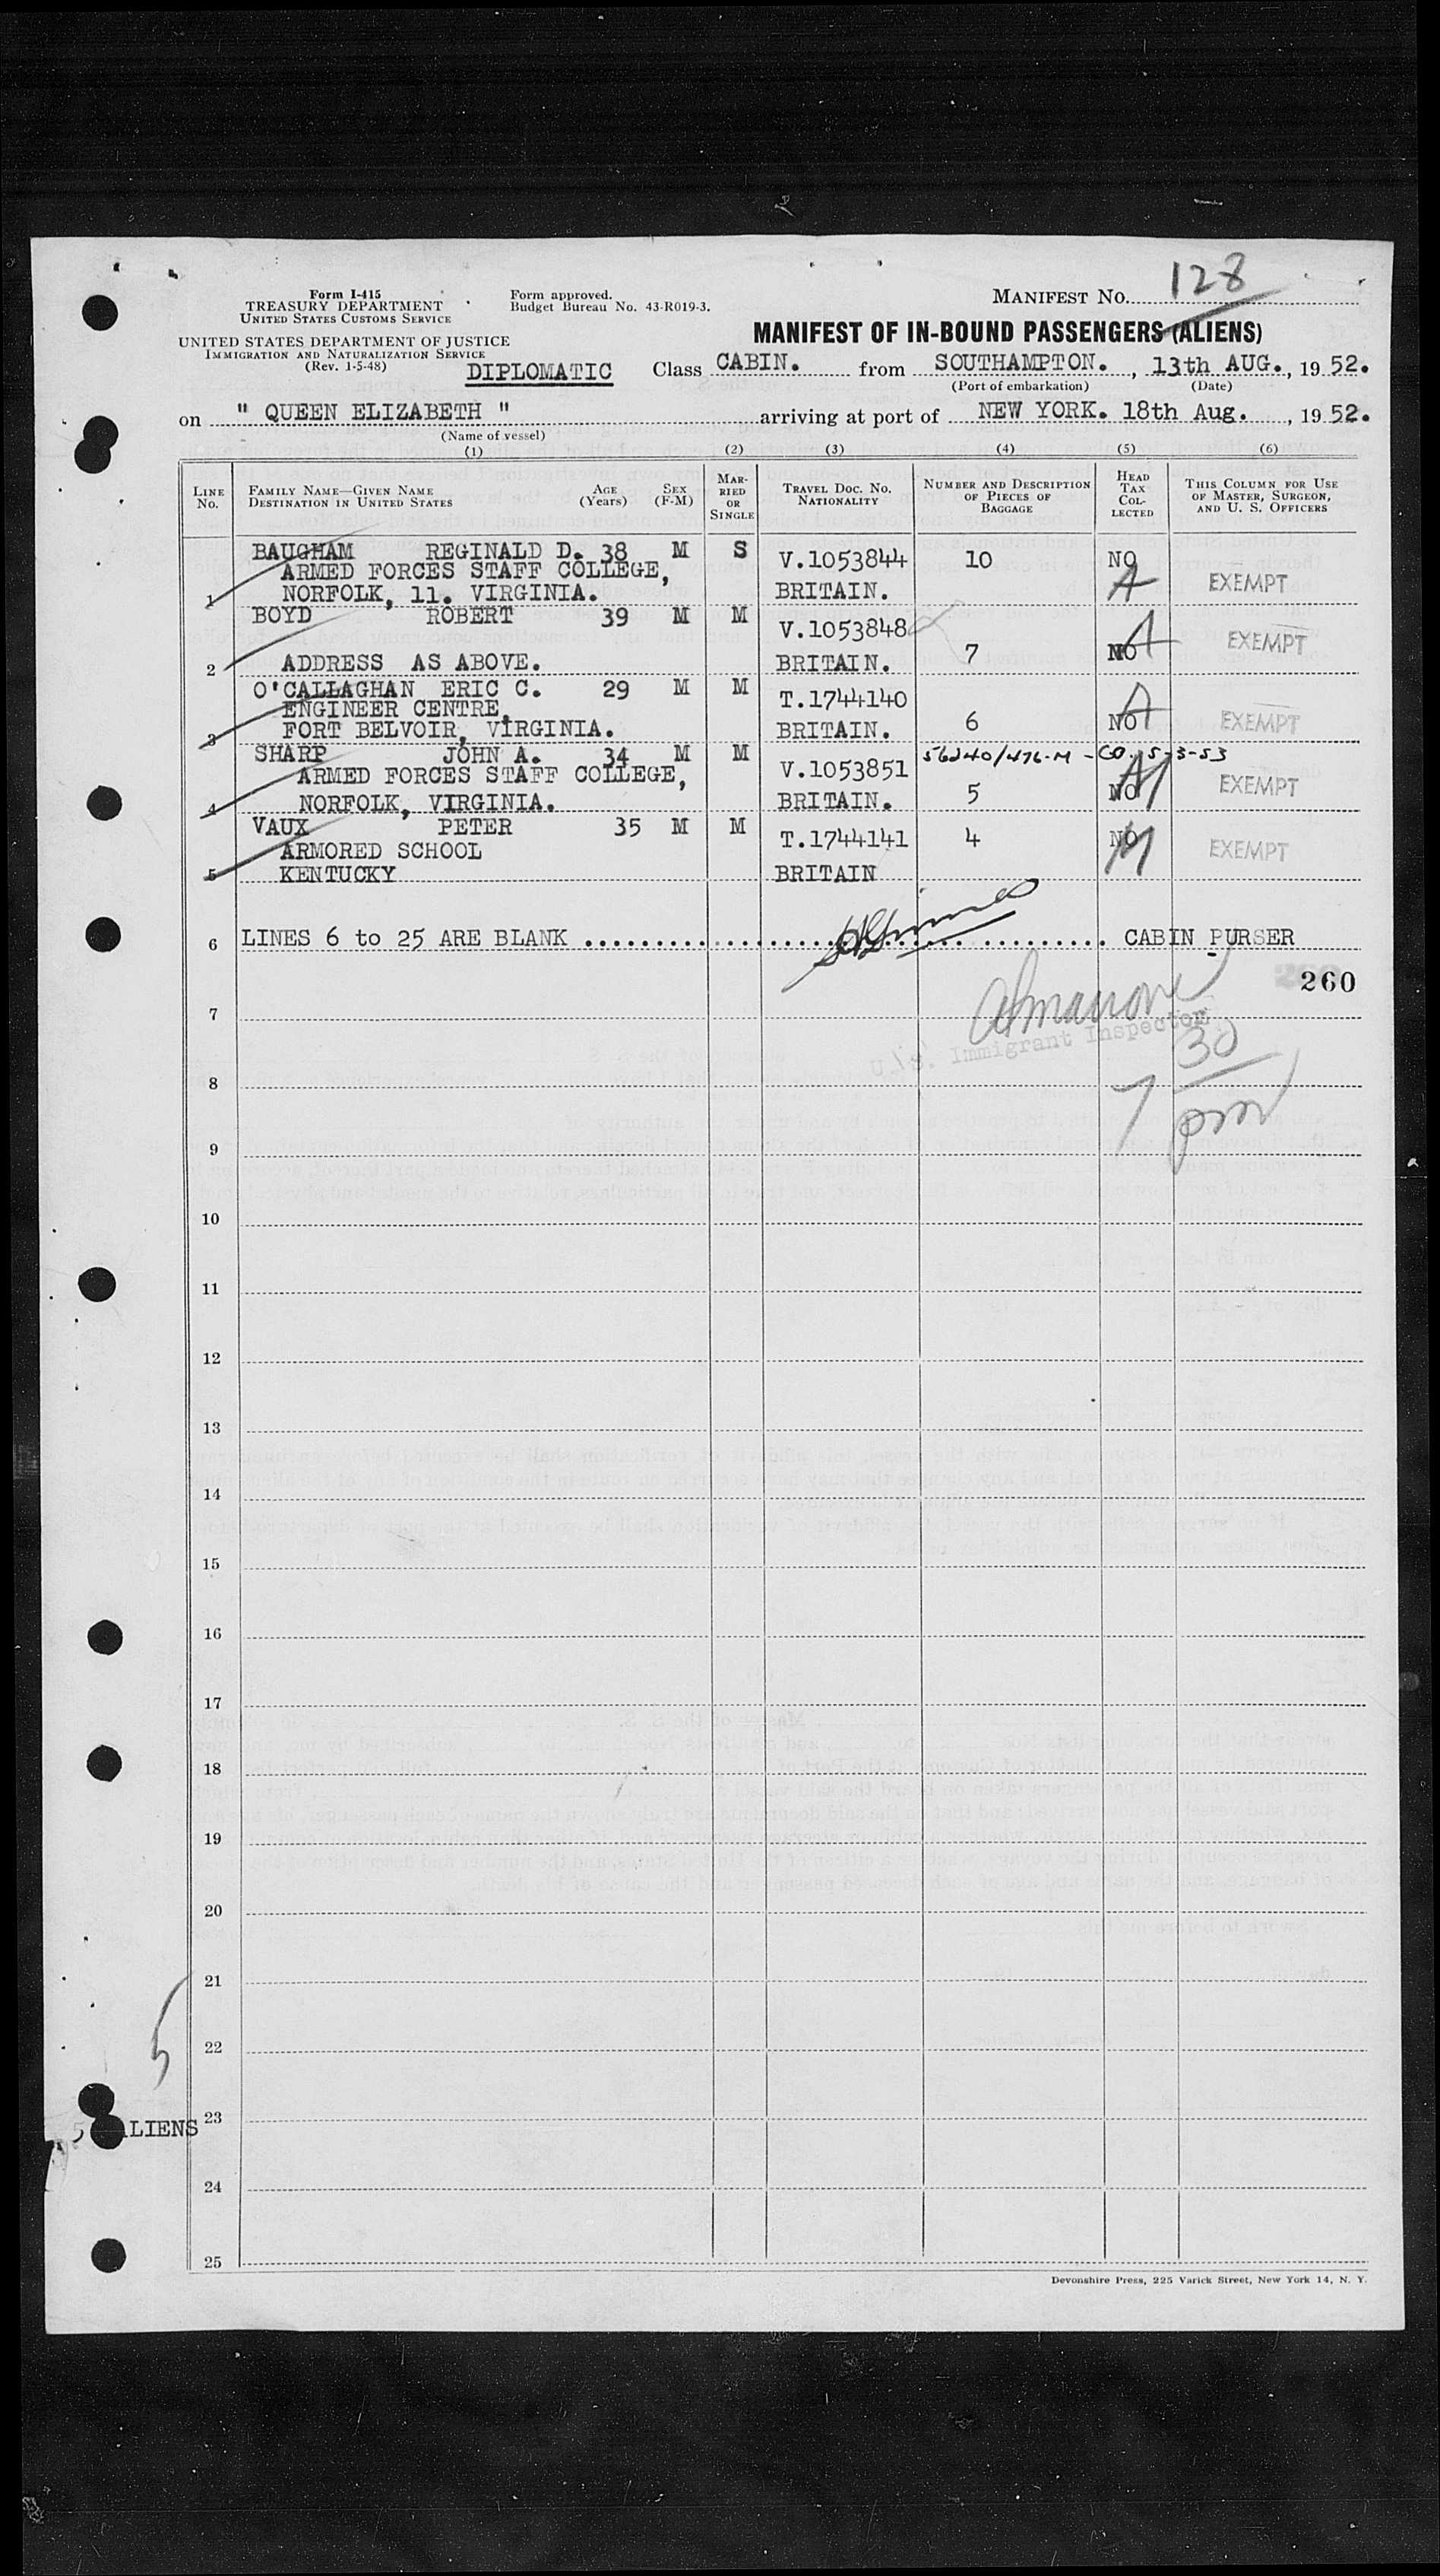 128
Form I-415
TREASURY DEPARTMENT
UNITED STATES CUSTOMS SERVICE
Form approved.
Budget Bureau No. 43-R019-3.
MANIFEST NO.
UNITED STATES DEPARTMENT OF JUSTICE
IMMIGRATION AND NATURALIZATION SERVICE
(Rev. 1-5-48)
MANIFEST OF IN-BOUND PASSENGERS (ALIENS)
DIPLOMATIC Class CABIN. from SOUTHAMPTON. , 13th AUG., 19 52.
(Port of embarkation) (Date)
on " QUEEN ELIZABETH " arriving at port of NEW YORK. 18th Aug. , 19 52.
(Name of vessel)
(1) (2) (3) (4) (5) (6)
LINE NO. FAMILY NAME—GIVEN NAME DESTINATION IN UNITED STATES AGE (YEARS) SEX (F-M) MARRIED OR SINGLE TRAVEL DOC. NO. NATIONALITY NUMBER AND DESCRIPTION OF PIECES OF BAGGAGE HEAD TAX COLLECTED THIS COLUMN FOR USE OF MASTER, SURGEON, AND U. S. OFFICERS
BAUGHAM REGINALD D. 38 M S V.1053844 10 NO
ARMED FORCES STAFF COLLEGE,
1 NORFOLK, 11. VIRGINIA. BRITAIN. A EXEMPT
BOYD ROBERT 39 M M V.1053848
2 ADDRESS AS ABOVE. BRITAIN. 7 NO A EXEMPT
O'CALLAGHAN ERIC C. 29 M M T.1744140
ENGINEER CENTRE,
3 FORT BELVOIR, VIRGINIA. BRITAIN. 6 NO A EXEMPT
SHARP JOHN A. 34 M M V.1053851 56240/476-M - CO. 5-3-53
ARMED FORCES STAFF COLLEGE,
4 NORFOLK, VIRGINIA. BRITAIN. 5 NO EXEMPT
VAUX PETER 35 M M T.1744141 4 NO EXEMPT
ARMORED SCHOOL
5 KENTUCKY BRITAIN
6 LINES 6 to 25 ARE BLANK CABIN PURSER
260
7
U.S. Immigrant Inspector
7 30 pm
8
9
10
11
12
13
14
15
16
17
18
19
20
21
5
22
5 ALIENS 23
24
25
Devonshire Press, 225 Varick Street, New York 14, N. Y.